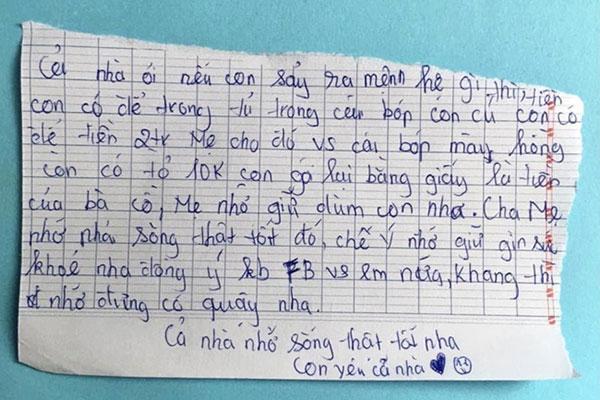 Cả nhà ơi nếu con sảy ra mệnh hệ gì thì, tiền
con có để trong tủ trong cái bóp còn củ con có
để tiền 2tr Mẹ cho đó vs cái bóp màu hồng
con có tờ 10K con gá lại bằng giấy là tiền
của bà cô, Mẹ nhớ giữ dùm con nha. Cha Mẹ
nhớ phải sống thật tốt đó, chế Ý nhớ giữ gìn sức
khoẻ nha đồng ý kb FB vs em nữa, Khang thì
nhớ đừng có quậy nha.
Cả nhà nhớ sống thật tốt nha
Con yêu cả nhà